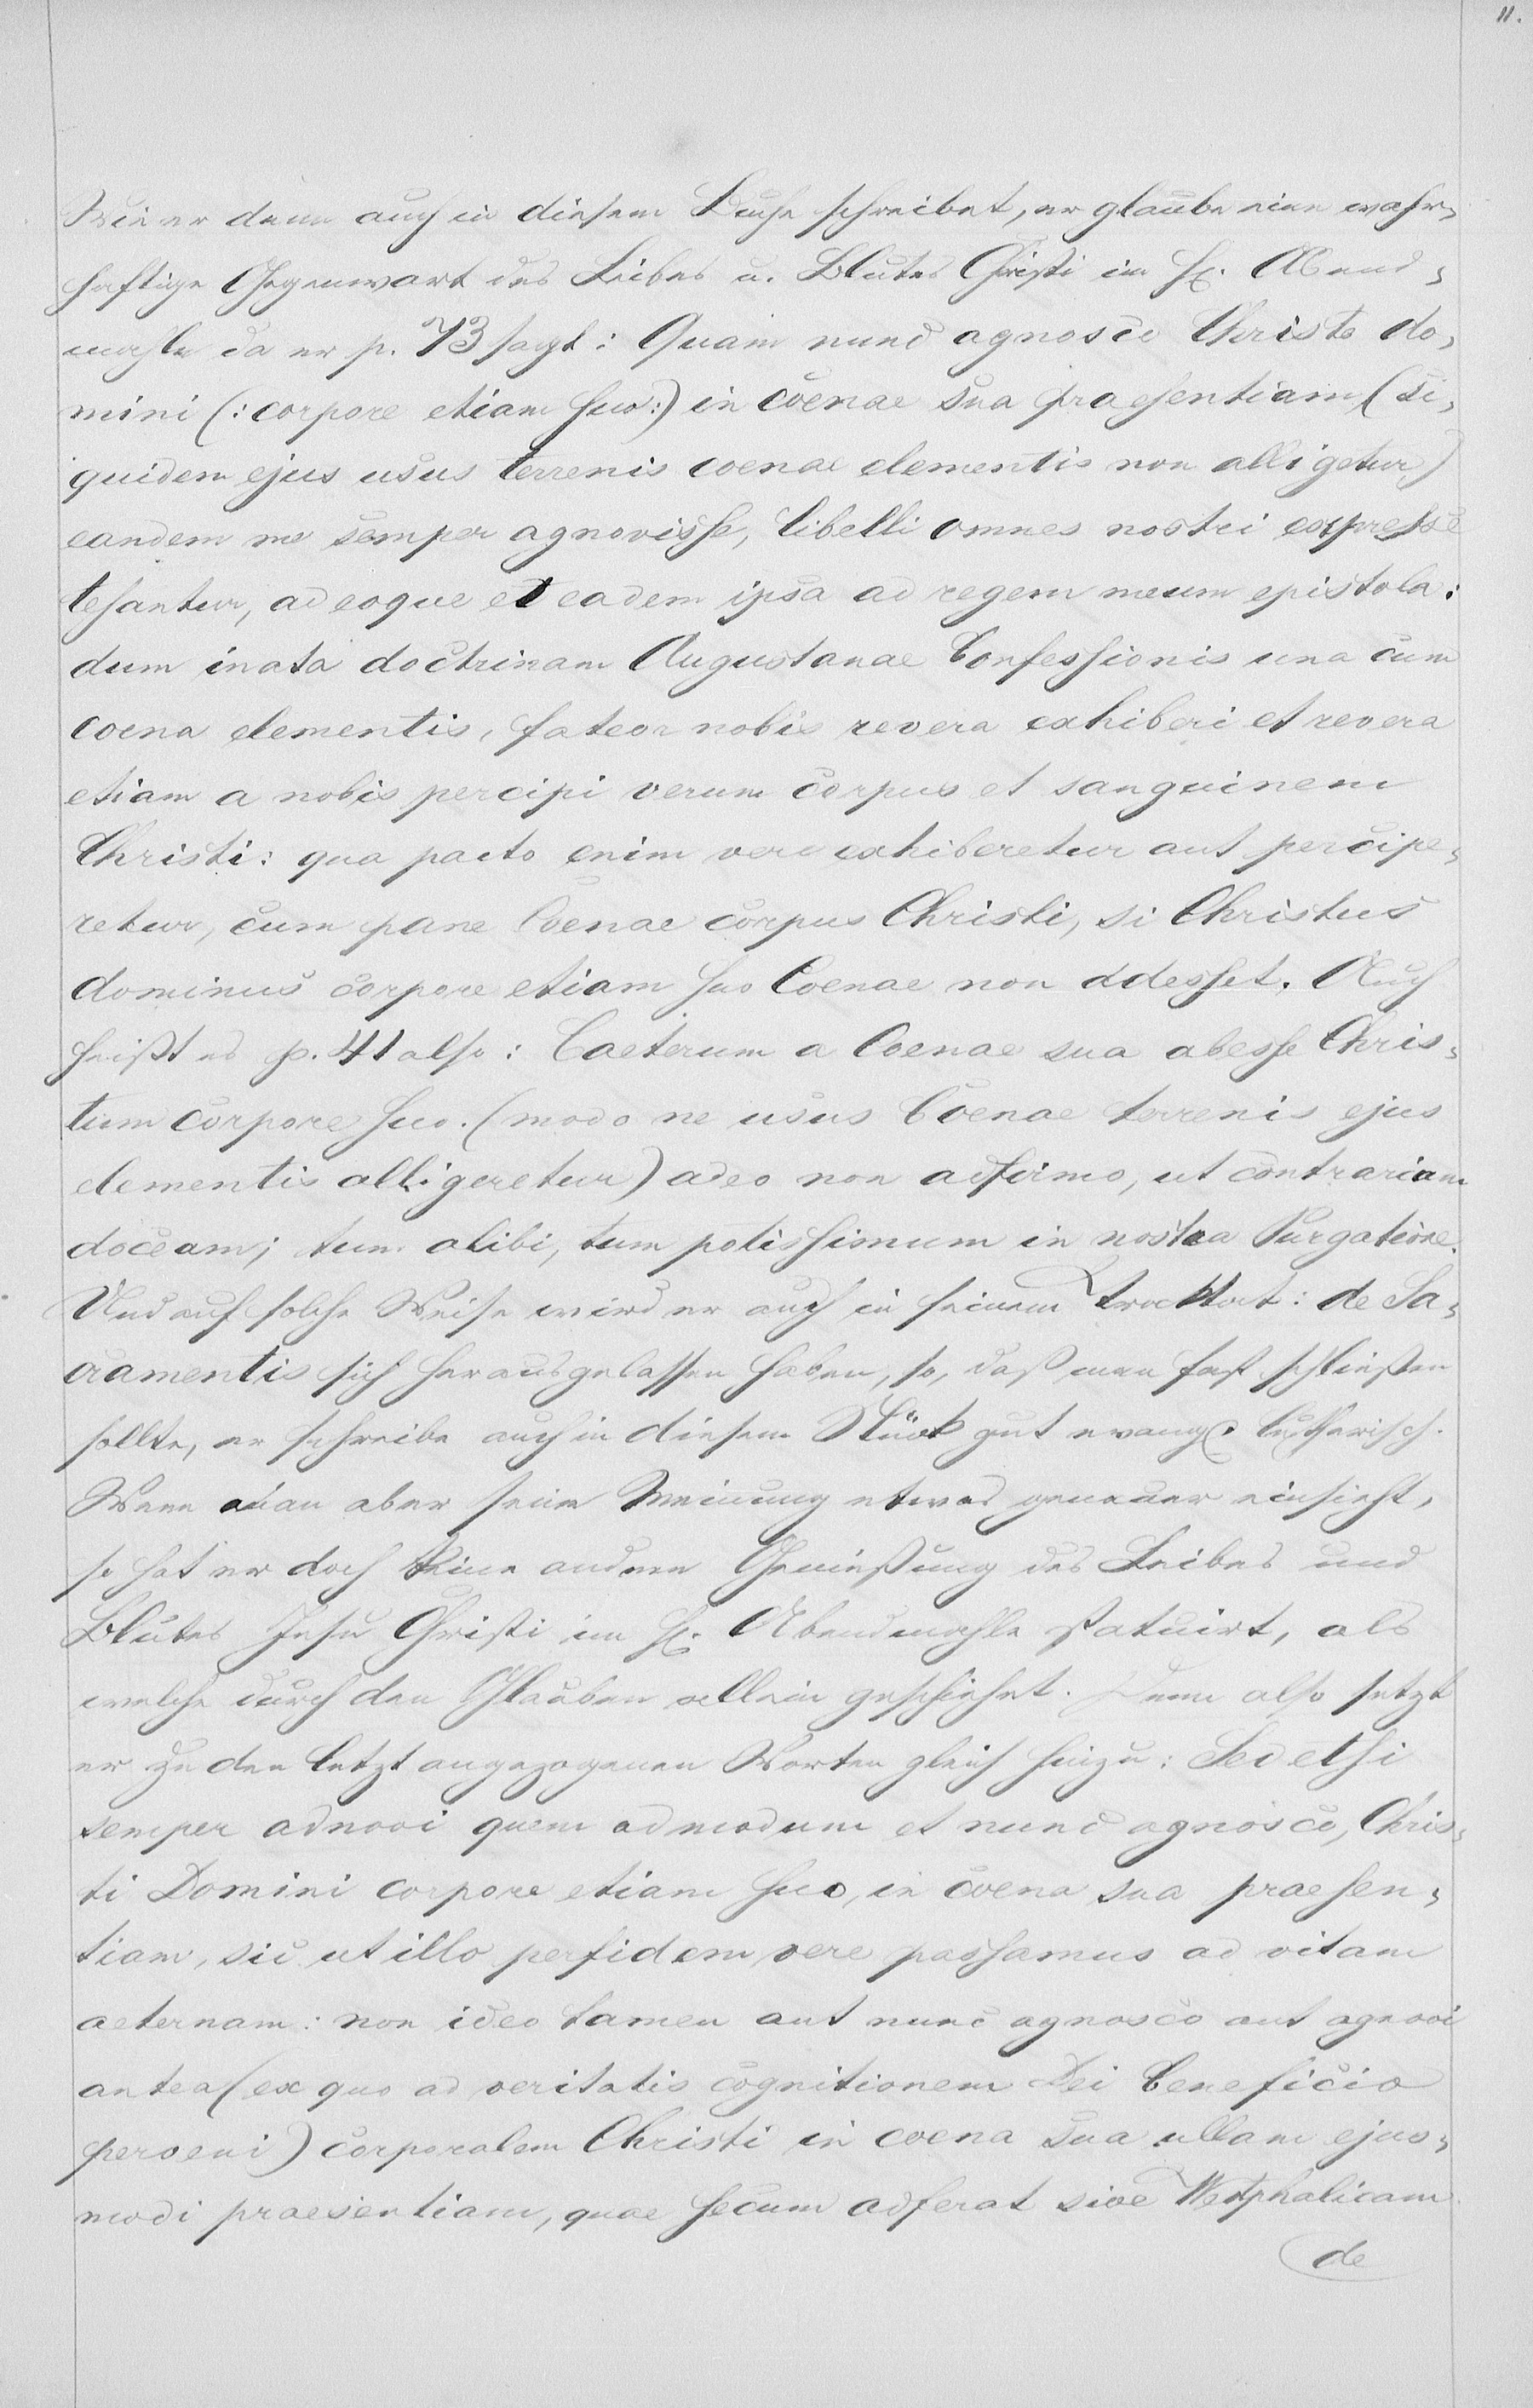 11.
Wie er denn auch in diesem Buche schreibet, er glaube eine wahr-
haftige Gegenwart des Leibes u. Blutes Christi im hl. Abend-
mahle da er p. 73 sagt: Quam nunc agnosco Christo do-
mini (: corpore etiam suo :) in coenae sua praesentiam (si-
quidem ejus usus terrenis coenae elementis non alligetur)
eandem me semper agnovisse, libelli omnes nostri expresse
tesantur, adeoque et eadem ipsa ad regem meum epistola:
dum inata doctrinam Augustanae Confessionis una cum
coena elementis, fateor nobis revera exhiberi et revera
etiam a nobis percipi verum corpus et sanguinem
Christi: qua pacto enim vere exhiberetur aut percipe-
retur, cum pane Coenae corpus Christi, si Christus
dominus corpore etiam suo Coenae non adesset. Auch
heißt es p. 41 also: Caeterum a Coenae sua abesse Chris-
tum corpore suo. (modo ne usus Coenae terrenis ejus
elementis alligeretur) adeo non adfirmo, ut contrariam
doceam; tum alibi, tum potissimum in nostra Purgatione.
Und auf solche Weise wird er auch in seinem Tracktat: de Sa-
cramentis sich herausgelassen haben, so, daß man fast schließen
sollte, er schreibe auch in diesem Stück gut evang. lutherisch.
Wenn man aber seine Meinung etwas genauer einsieht,
so hat er doch keine andere Genießung des Leibes und
Blutes Jesu Christi im hl. Abendmahle statuirt, als
welche durch den Glauben allein geschiehet. Denn also setzt
er zu den letzt angezogenen Worten gleich hinzu: Sed etsi
semper adnovi quem admodum et nunc agnosco, Chris-
ti Domini corpore etiam suo, in coena sua praesen-
tiam, sic ut illo perfidem vere passamus ad vitam
aeternam: non ideo tamen aut nunc agnosco aut agnovi
antea (ex quo ad veritatis cognitionem Dei beneficio
perveni) corporalem Christi in coena sua ullam ejus-
modi praesentiam, quae secum adferat sive Westphalicam
de